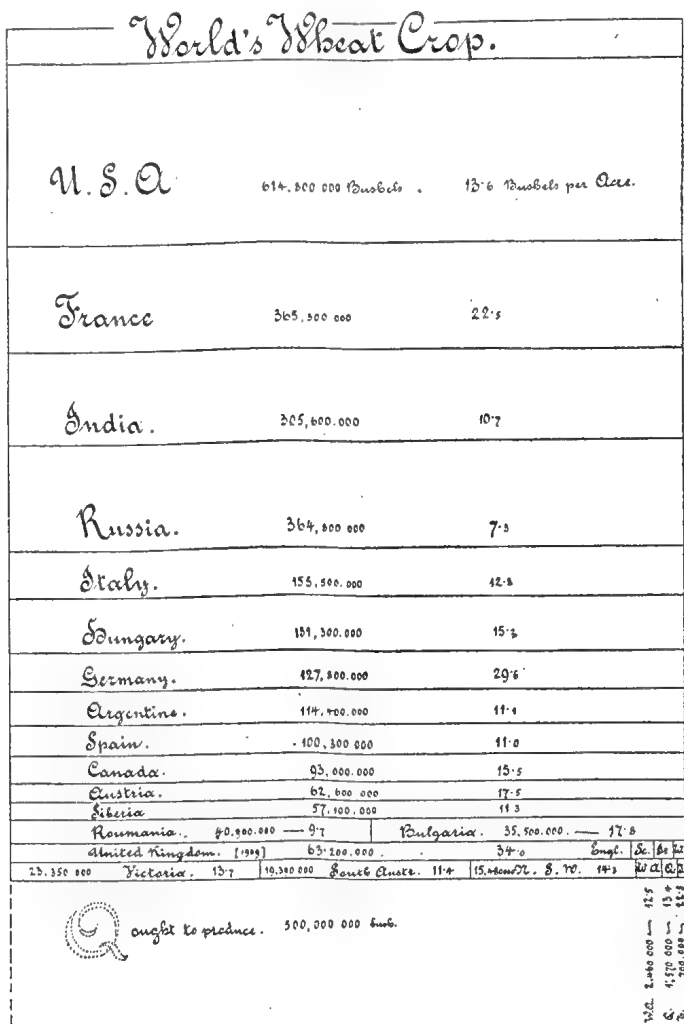 World's Wheat Crop.
U.S.A 614,800 000 Bushels . 13·6 Bushels per Acre.
France 365,500 000 22·5
India. 305,600.000 10·7
Russia. 364,800 000 7·3
Italy. 155,500.000 12·8
Hungary. 131,300.000 15·2
Germany. 127,800.000 29·6
Argentine. 114,400.000 11·1
Spain. 100,300 000 11·0
Canada. 93,000.000 15·5
Austria. 62,600 000 17·5
Siberia 57,100,000 11·3
Roumania. 40,900.000 — 9·7 Bulgaria. 35,500,000. — 17·8
United Kingdom. [1909] 63·200.000. 34·0 Engl. Sc.
23,350 000 Victoria. 13·7 19,300 000 South Austr. 11·4 N. S. W. 14·3 W A Q
Q ought to produce. 500,000 000 bush.
W.A. 2,460 000 — 12·5
Q. 1,570 000 — 13·4